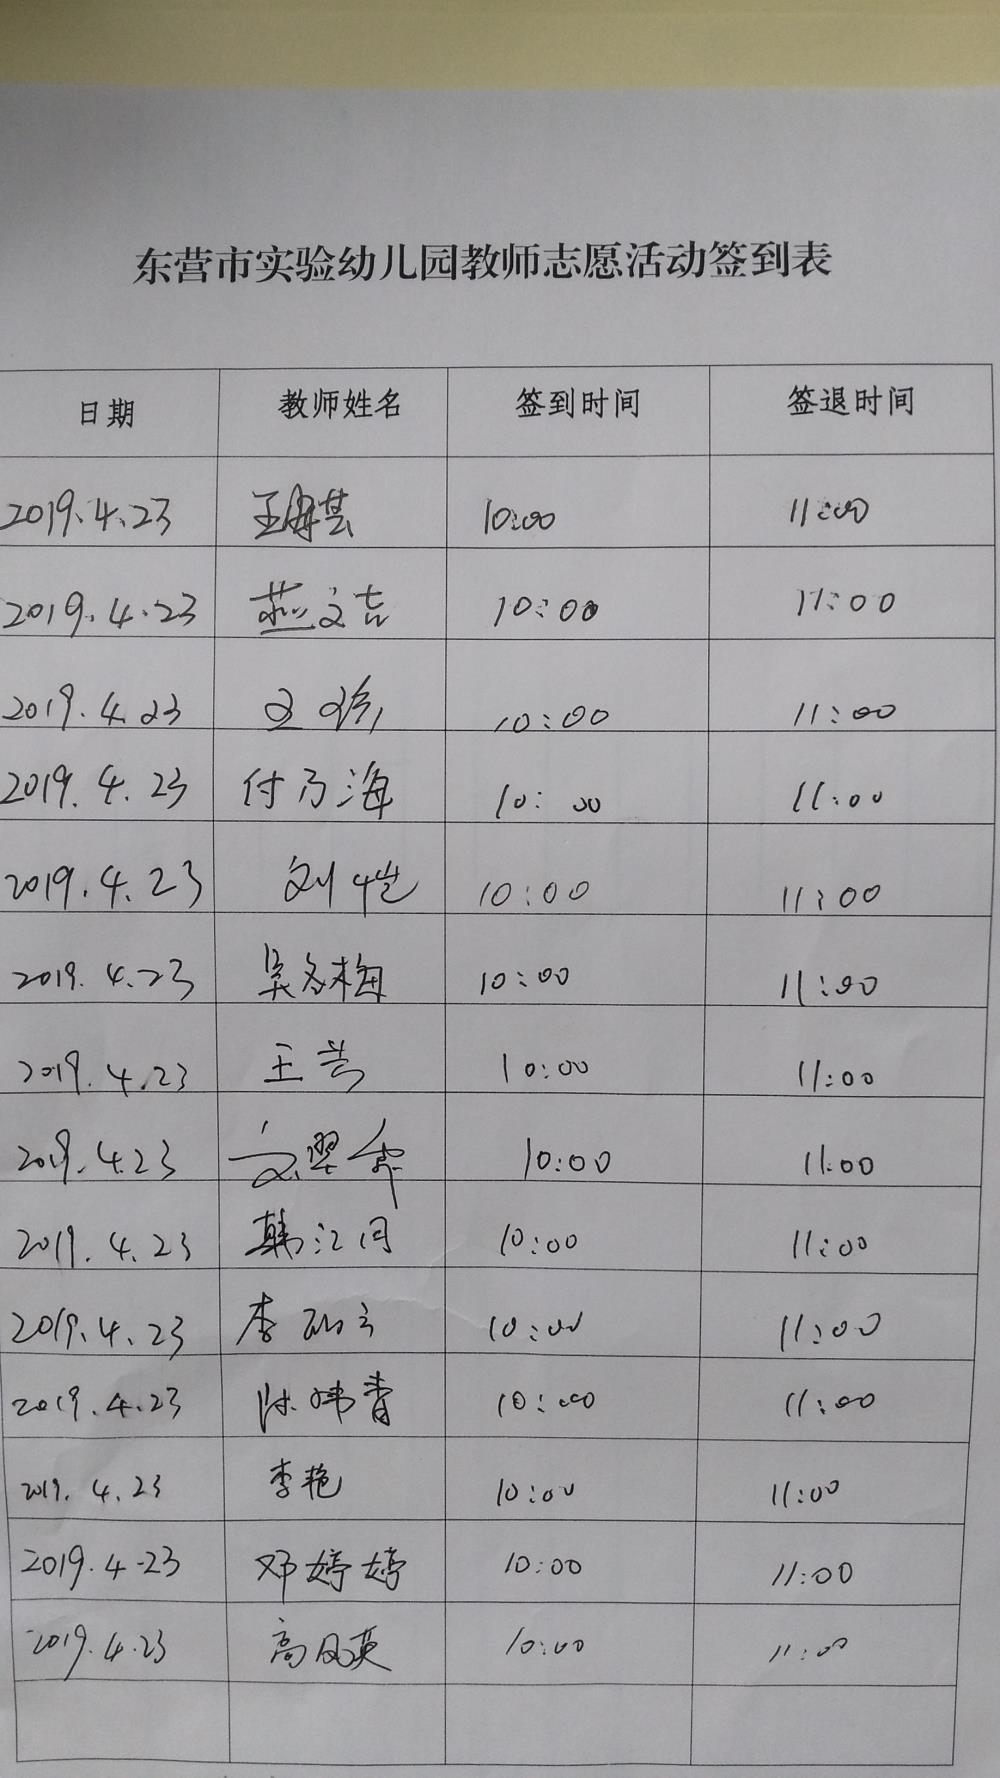 东营市实验幼儿园教师志愿活动签到表
日期 教师姓名 签到时间 签退时间
2019.4.23 王 10:00 11:00
2019.4.23 燕文吉 10:00 11:00
2019.4.23 10:00 11:00
2019.4.23 付乃海 10:00 11:00
2019.4.23 刘恺 10:00 11:00
2019.4.23 吴冬梅 10:00 11:00
2019.4.23 王 10:00 11:00
2019.4.23 10:00 11:00
2019.4.23 韩江月 10:00 11:00
2019.4.23 李 10:00 11:00
2019.4.23 陈炜青 10:00 11:00
2019.4.23 李艳 10:00 11:00
2019.4.23 邓婷婷 10:00 11:00
2019.4.23 高凤英 10:00 11:00